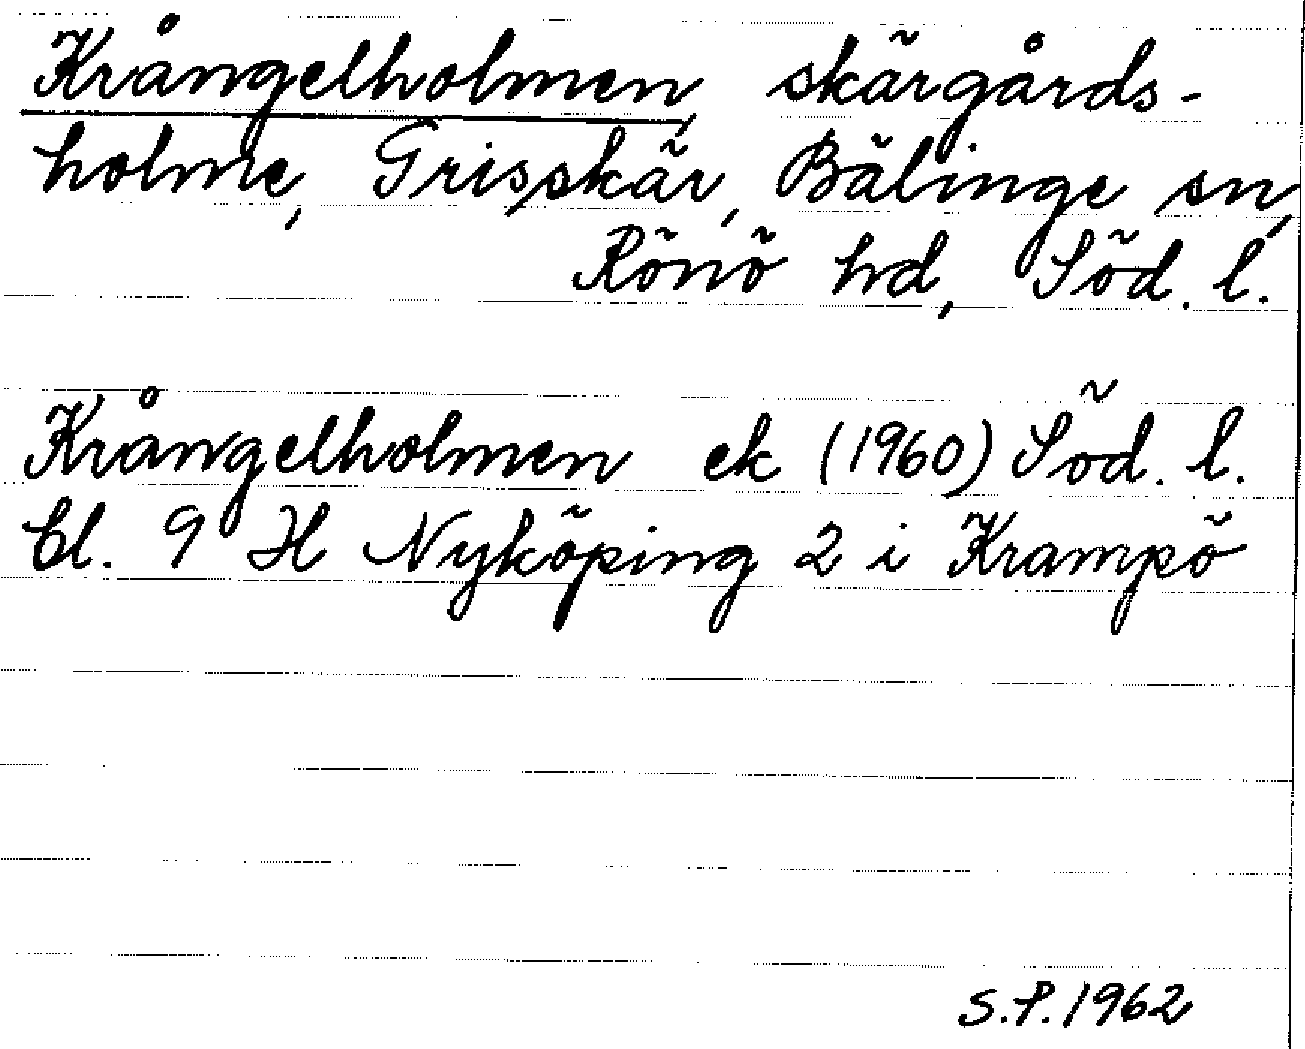 Krångelholmen, skärgårds-
holme, Grisskär, Bälinge sn,
Rönö hd, Söd. l.
Krångelholmen ek (1960) Söd. l.
Bl. 9 H Nyköping 2 i Krampö
S.P. 1962